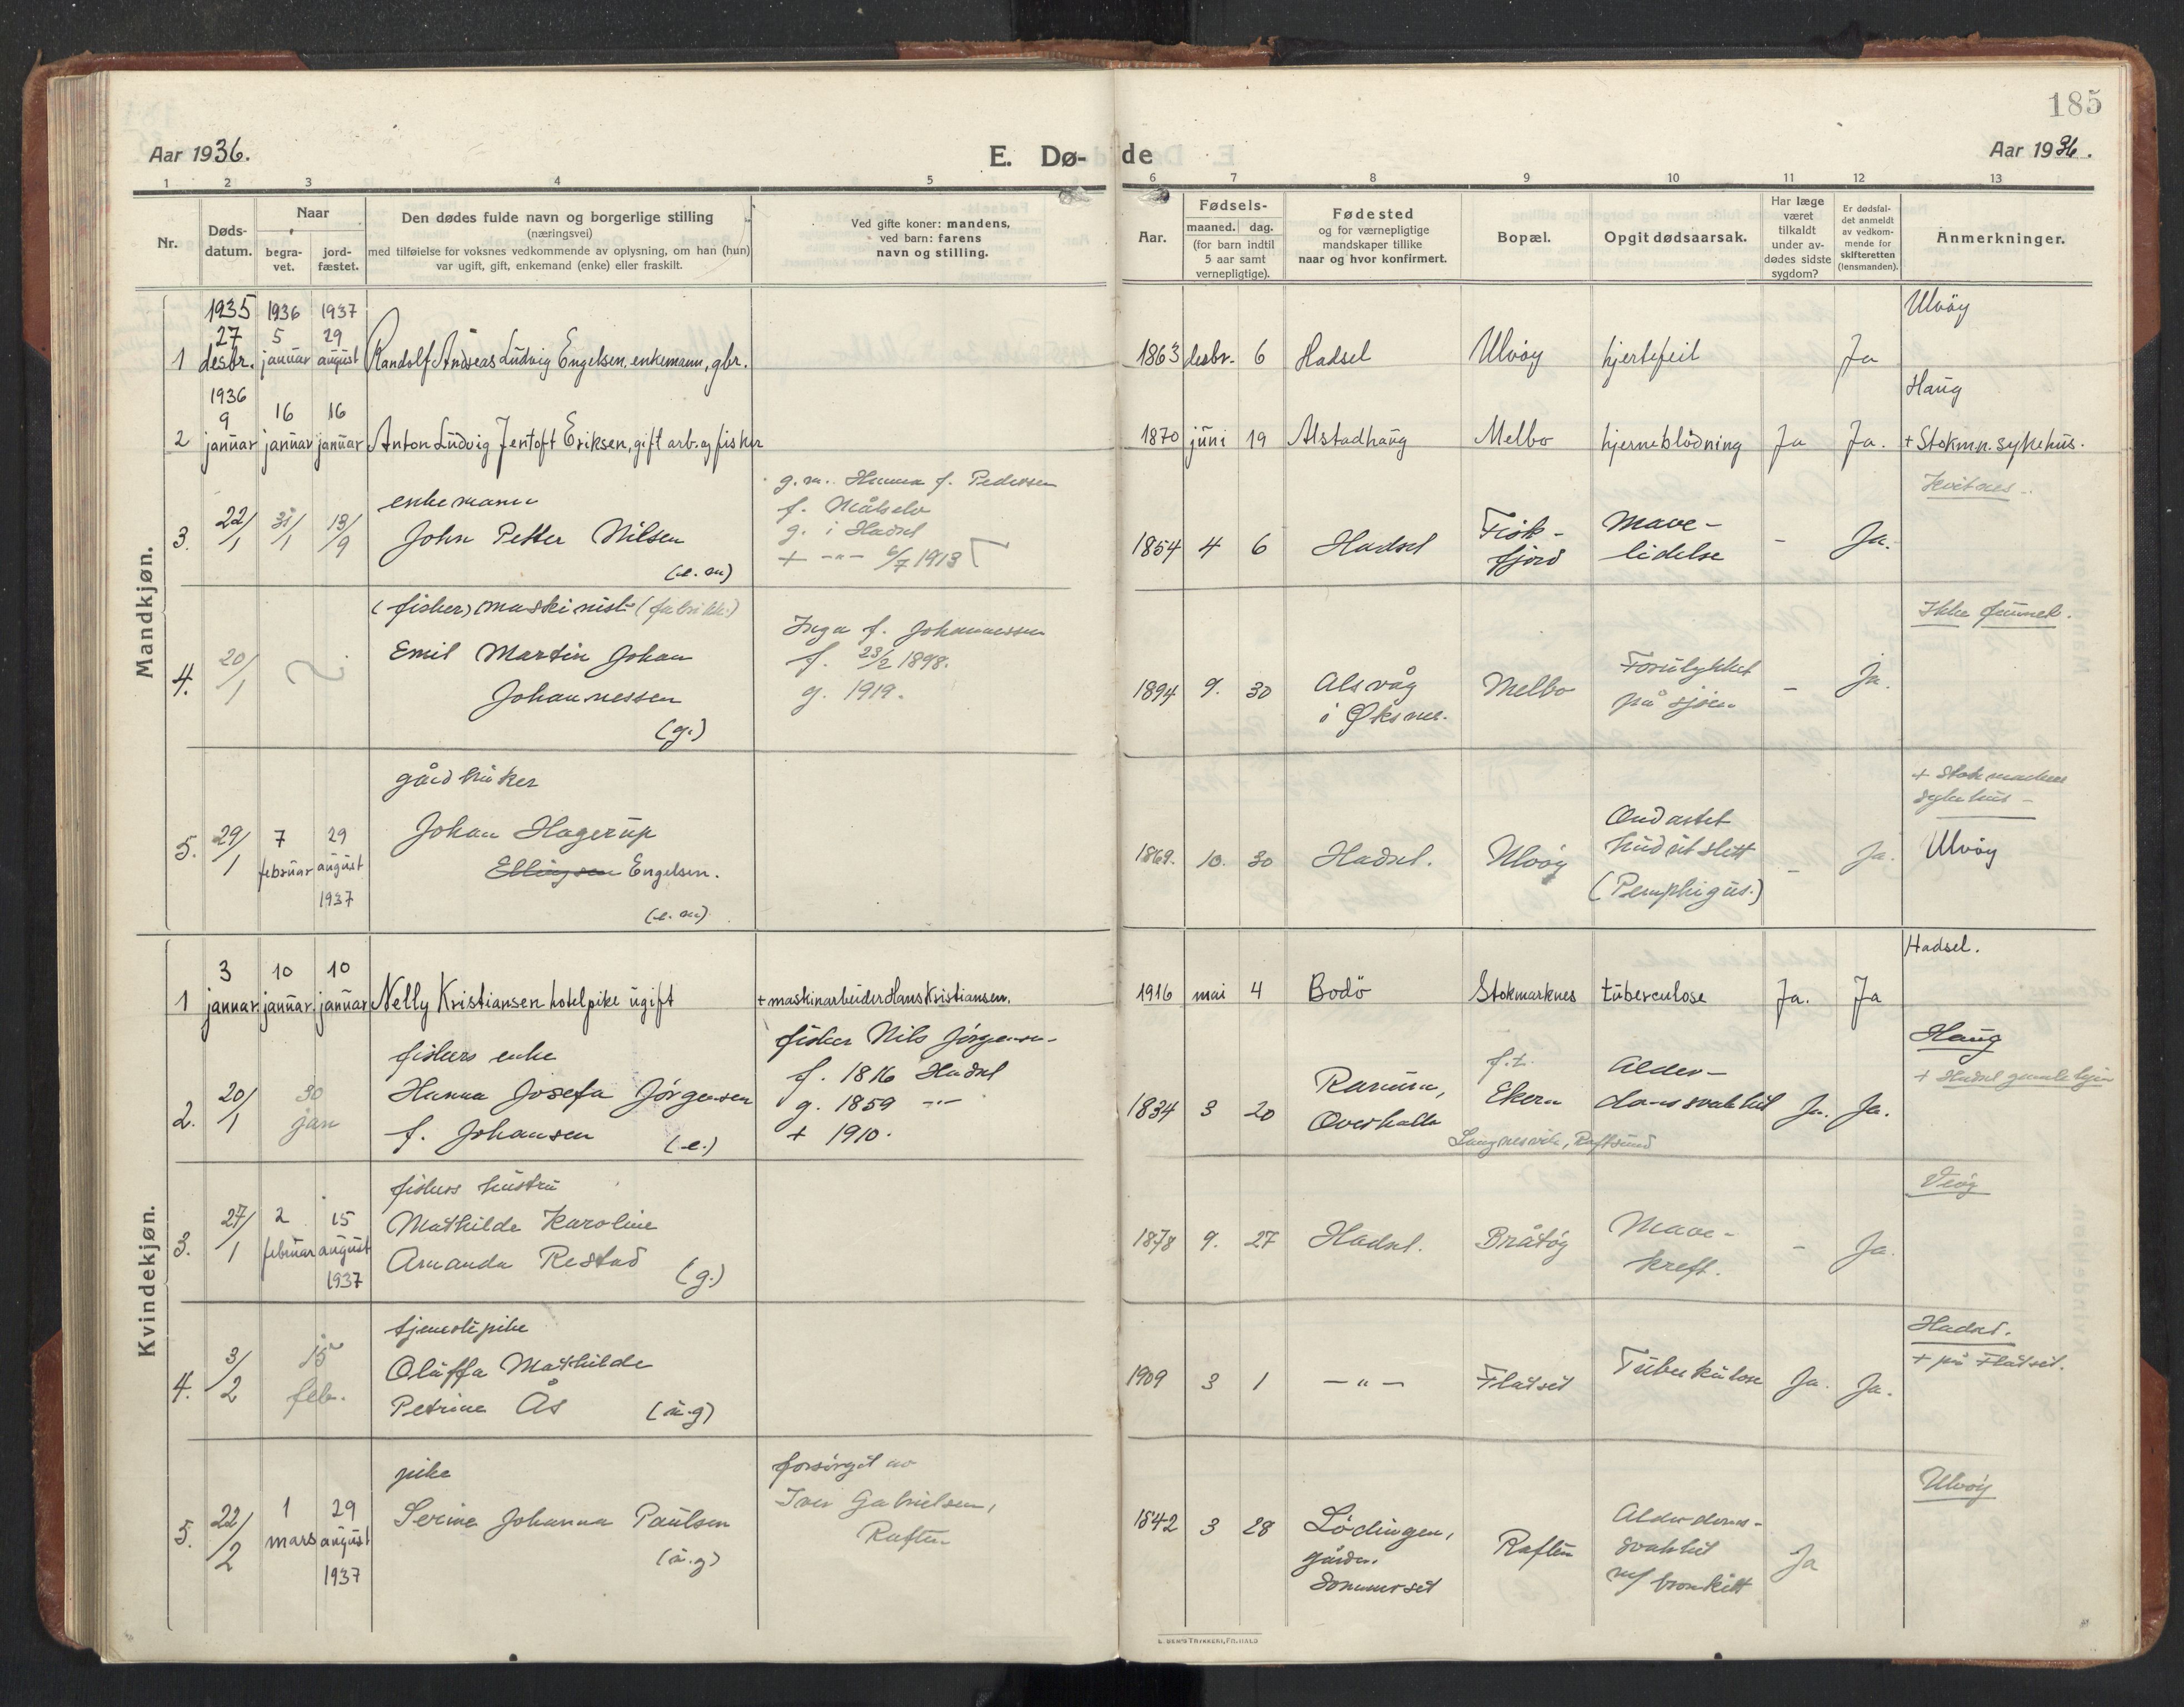 185
Aar 1936.
E. Dø-
de
Aar 1936.
1 2 3 4 5 6 7 8 9 10 11 12 13
Nr.
Døds-
datum.
Naar
begra-
vet.
jord-
fæstet.
Den dødes fulde navn og borgerlige stilling
(næringsvei)
med tilføielse for voksnes vedkommende av oplysning, om han (hun)
var ugift, gift, enkemand (enke) eller fraskilt.
Ved gifte koner: mandens,
ved barn: farens
navn og stilling.
Aar.
Fødsels-
maaned. dag.
(for barn indtil
5 aar samt
vernepligtige).
Fødested
og for værnepligtige
mandskaper tillike
naar og hvor konfirmert.
Bopæl.
Opgit dødsaarsak.
Har læge
været
tilkaldt
under av-
dødes sidste
sygdom?
Er dødsfal-
det anmeldt
av vedkom-
mende for
skifteretten
(lensmanden).
Anmerkninger.
Mandkjøn.
1935 1936 1937
27 5 29
1 desbr. januar august Randolf Andreas Ludvig Engelsen, enkemann, gbr.
1863 desbr. 6 Hadsel Ulvöy hjertefeil Ja
Ulvöy
1936
9 16 16
2 januar januar januar Anton Ludvig Jentoft Eriksen, gift arb. og fisker
1870 juni 19 Alstadhaug Melbo hjerneblödning Ja Ja.
Haug
+ Stokmn. sykehus.
enkemann
3. 22/1 31/1 13/9 John Petter Nilsen
(e.m)
g.m. Hanna f. Pedersen
f. Målselv
g. i Hadsel
+ -"- 6/7 1913
1854 4 6 Hadsel
Fisk-
fjord
Mave-
lidelse
- Ja.
Kvitnes
(fisker) maskinist (fabrikk.)
4. 20/1 Emil Martin Johan
Johannessen
(g.)
Inga f. Johannessen
f. 23/2 1898.
g. 1919.
1894 9. 30
Alsvåg
i Øksnes.
Melbo
Forulykket
på sjøen
- Ja.
Ikke funnet.
gårdbruker
5. 29/1 7 februar 29 august 1937
Johan Hagerup
Ellingsen Engelsen.
(e.m)
1869. 10. 30 Hadsel. Ulvöy
Ondartet
hudutslett
(Pemphigus.)
- Ja.
+ Stokmarknes
sykehus -
Ulvöy
Kvindekjøn.
3 10 10
1 januar. januar. januar Nelly Kristiansen hotelpike ugift
+ maskinarbeider Hans Kristiansen.
1916 mai 4 Bodö Stokmarknes tuberculose Ja. Ja
Hadsel.
fiskers enke
2. 20/1 30 jan
Hanna Josefa Jörgensen
f. Johansen (e.)
fisker Nils Jörgensen
f. 1816 Hadsel
g. 1859 -"-
+ 1910.
1834 3 20
Overhalla
f.t.
Ekern
Alder-
domssvakhet
Ja. Ja.
Haug
+ Hadsel gamlehjem
fiskers hustru
3. 27/1 2 februar 15 august 1937
Mathilde Karoline
Amanda Restad (g.)
1878 9. 27 Hadsel. Bråtöy
Mave-
kreft.
- Ja.
tjenestepike
4. 3/2 15 feb.
Oluffa Mathilde
Petrine Ås (u.g)
1909 3 1 -"- Flatset Tuberkulose Ja. Ja.
Hadsel.
+ på Flatset.
pike
5. 22/2 1 mars 29 august 1937
Serine Johanna Paulsen
(u.g)
forsörget av
Iver Gabrielsen,
Raften
1842 3 28
Lödingen,
gården
Sommerset
Raften
Alderdoms-
svakhet
m/ bronkitt
Ja
Ulvöy